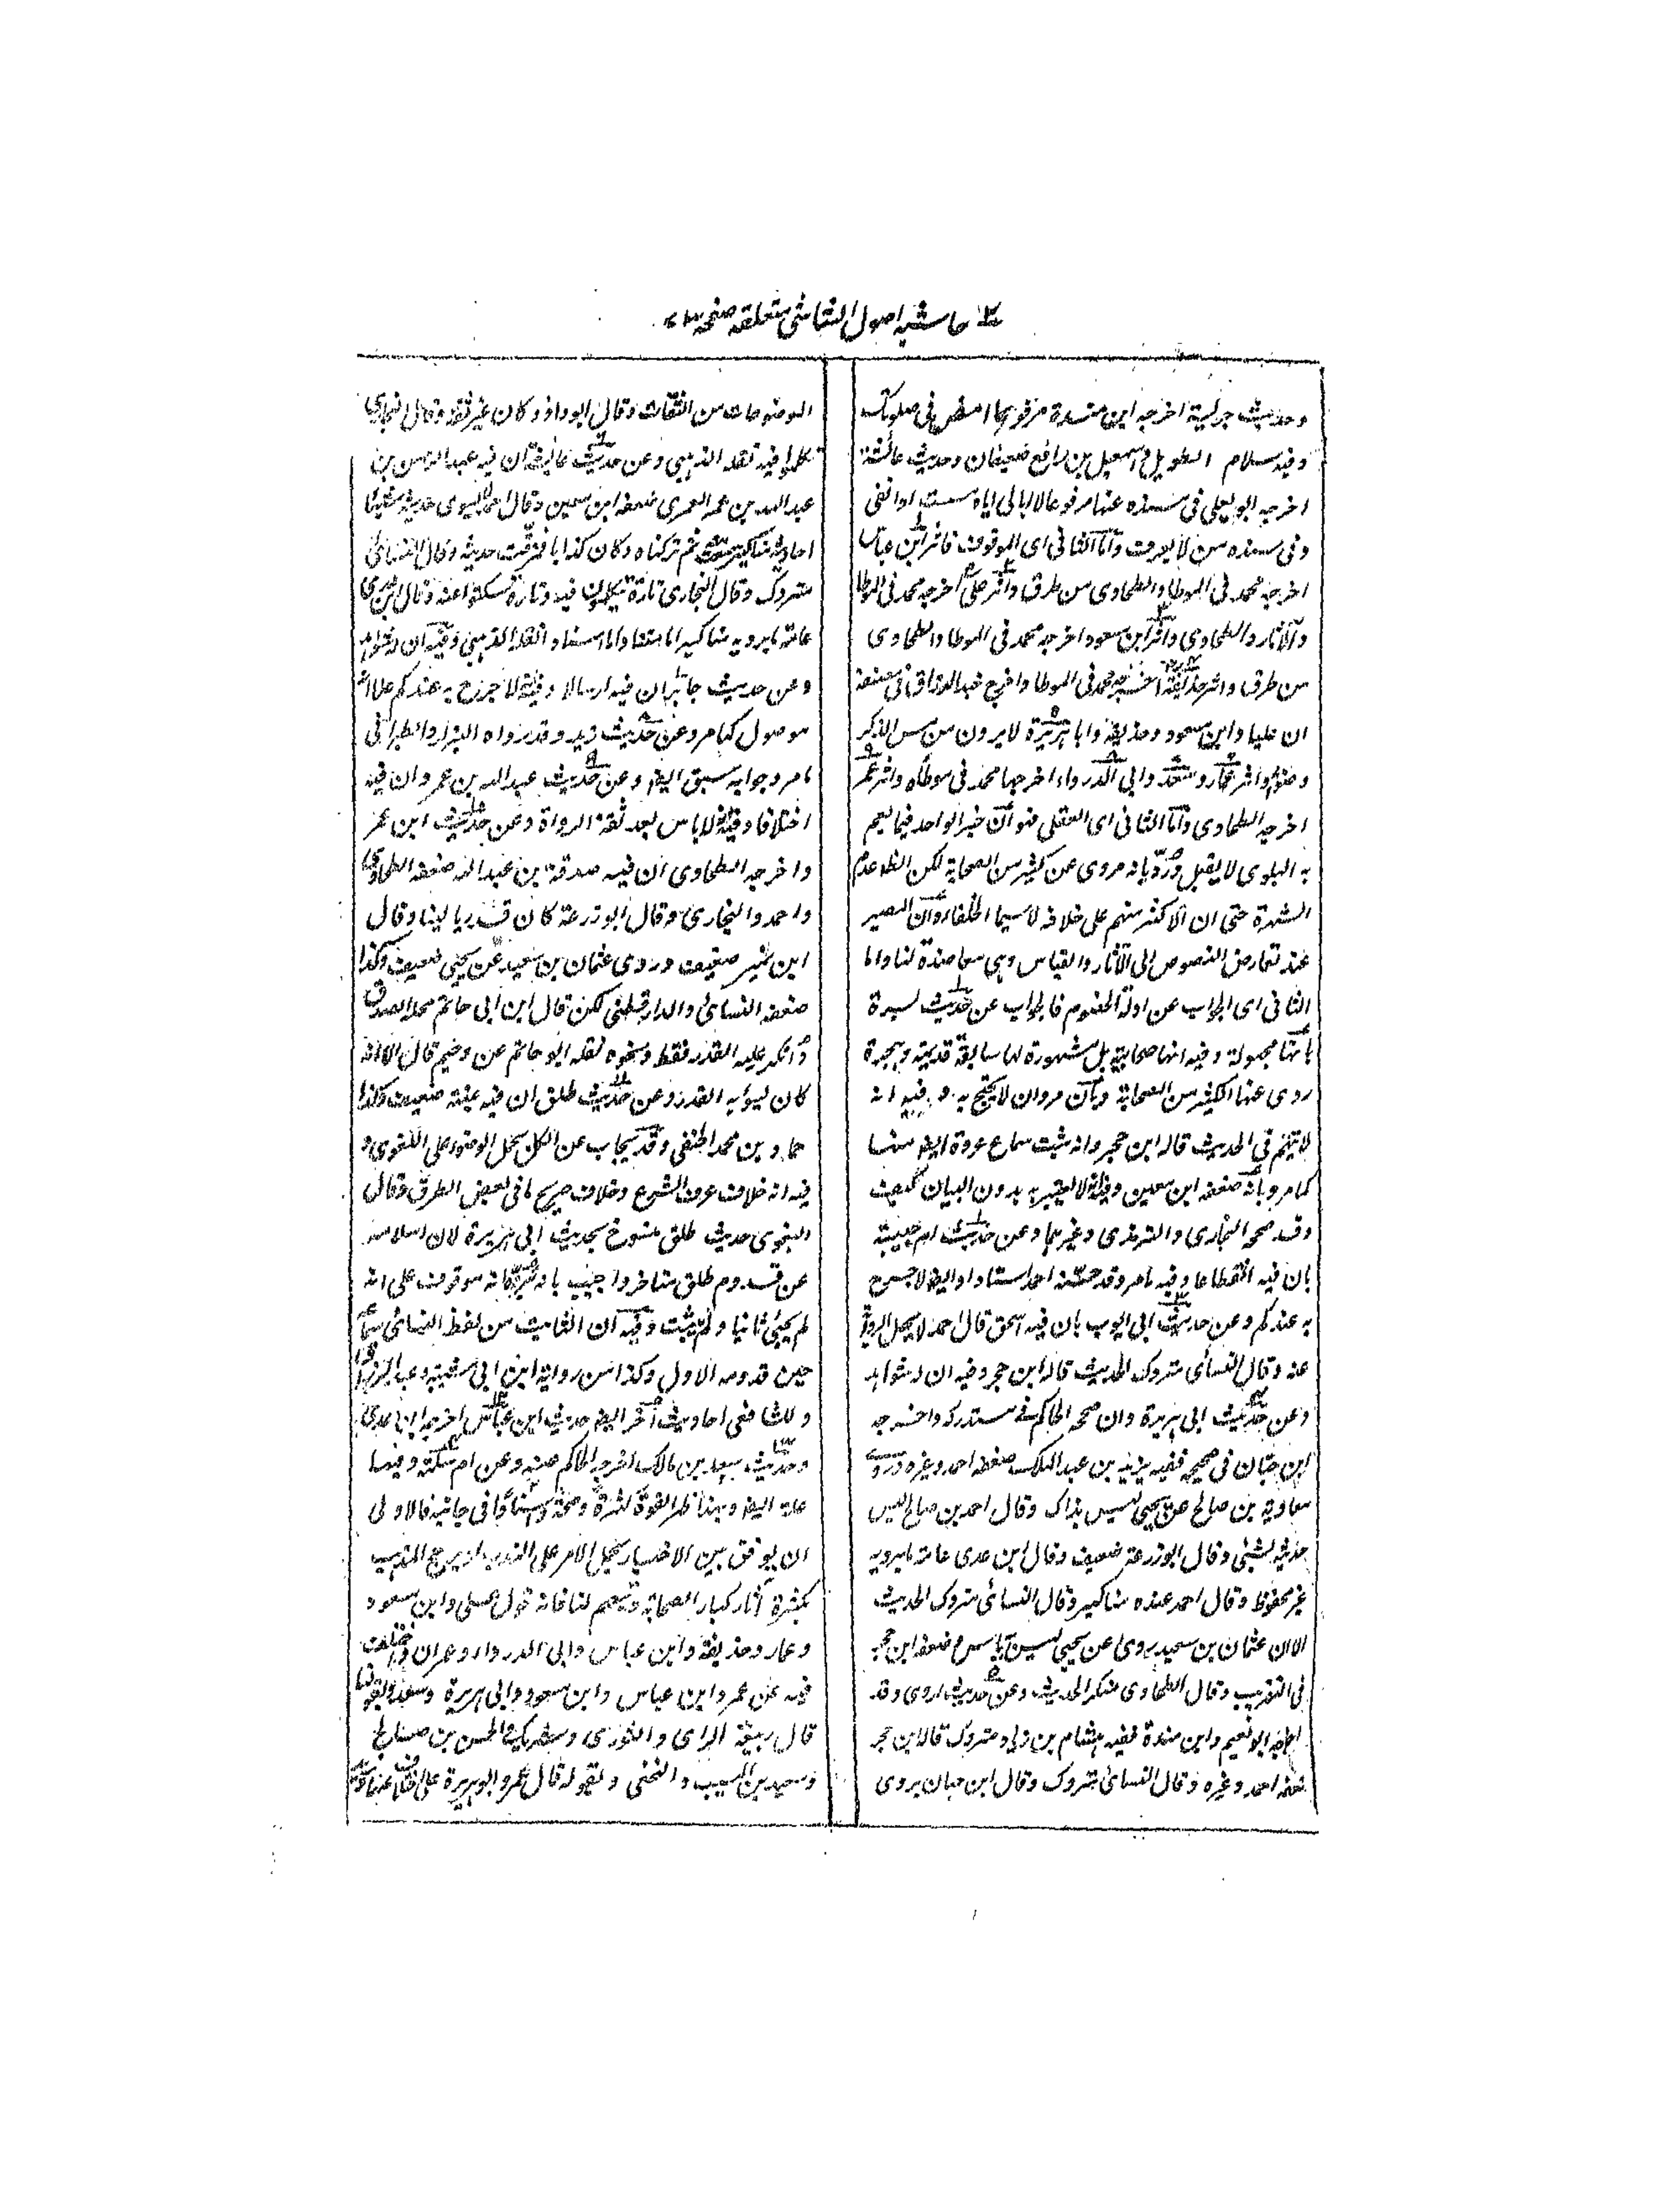 حاشیہ اصول الشاشی متعلقہ صفحہ
وحديث جرية اخرجه ابن مندة مرفوعا امض فى صلوتك
وفيه سلام الطويل واسمعيل بن رافع ضعيفان وحديث عائشة
اخرجه ابو يعلى فى مسنده عنها مرفوعا لا ابالى اياه مسست او انفى
وفى سنده من لا يعرف واما الثانى اى الموقوف فاثر ابن عباس
اخرجه محمد فى الموطا والطحاوى من طرق واثر على اخرجه محمد فى الموطا
والآثار والطحاوى واثر ابن مسعود اخرجه محمد فى الموطا والطحاوى
من طرق واثر حذيفة اخرجه محمد فى الموطا واخرج عبد الرزاق فى مصنفه
ان عليا وابن مسعود وحذيفة وابا هريرة لا يرون من مس الذكر
وضوءا واثر عمار وسعد وابى الدرداء اخرجها محمد فى موطاه واثر عمر
اخرجه الطحاوى واما الثانى اى العقلى فهو ان خبر الواحد فيما يعم
به البلوى لا يقبل ورد بانه مروى عن كثير من الصحابة لكن الظ عدم
الشهرة حتى ان الاكثر منهم على خلافه لا سيما الخلفاء وان المصير
عند تعارض النصوص الى الآثار والقياس وهى معاضدة لنا واما
الثانى اى الجواب عن ادلة الخصوم فالجواب عن حديث بسرة
بانها مجهولة وفيه انها صحابية بل مشهورة لها سابقة قديمة وهجرة
روى عنها الكثير من الصحابة وبان مروان لا يحتج به وفيه انه
لا يتهم فى الحديث قاله ابن حجر وانه ثبت سماع عروة ايضا منها
كما مر وبانه ضعفه ابن معين وفيه انه لا يعتبر به بدون البيان كيف
وقد صححه البخارى والترمذى وغيرهما وعن حديث ام حبيبة
بان فيه انقطاعا وفيه ما مر وقد حسنه احمد اسنادا وايضا لا جرح
به عندكم وعن حديث ابى ايوب بان فيه اسحق قال احمد لا يحل الرواية
عنه وقال النسائى متروك الحديث قاله ابن حجر وفيه ان له شواهد
وعن حديث ابى هريرة وان صححه الحاكم فى مستدركه واخرجه
ابن حبان فى صحيحه ففيه يزيد بن عبد الملك ضعفه احمد وغيره وروى
معاوية بن صالح عن يحيى ليس بذاك وقال احمد بن صالح ليس
حديثه بشئى وقال ابو زرعة ضعيف وقال ابن عدى عامة ما يرويه
غير محفوظ وقال احمد عنده مناكير وقال النسائى متروك الحديث
الا ان عثمان بن سعيد يروى عن يحيى ليس به باس وضعفه ابن حجر
فى التقريب وقال الطحاوى منكر الحديث وعن حديث اروى وقد
اخرجه ابو نعيم وابن مندة ففيه هشام بن زياد متروك قاله ابن حجر
ضعفه احمد وغيره وقال النسائى متروك وقال ابن حبان يروى
الموضوعات من الثقات وقال ابو داؤد كان غير ثقة وقال البخارى
تكلموا فيه نقله الذهبى وعن حديث عائشة ان فيه عبد الرحمن بن
عبد الله بن عمر العمرى ضعفه ابن معين وقال احمد لا يسوى حديثه شيئا
احاديثه مناكير ثم تركناه وكان كذابا فمزقت حديثه وقال النسائى
متروك وقال البخارى تارة يتكلمون فيه وتارة سكتوا عنه وقال ابن عدى
عامة ما يرويه مناكير اما متنا واما اسنادا نقله الذهبى وفيه ان له شواهد
وعن حديث جابر ان فيه ارسالا وفيه انه لا جرح به عندكم على انه
موصول كما مر وعن حديث زيد وقد رواه البزار والطبرانى
ما مر وجوابه سبق ايضا وعن حديث عبد الله بن عمرو ان فيه
اختلافا وفيه انه لا باس بعد ثقة الرواة وعن حديث ابن عمر
واخرجه الطحاوى ان فيه صدقة بن عبد الله ضعفه الطحاوى
واحمد والبخارى وقال ابو زرعة كان قدريا لينا وقال
ابن نمير ضعيف وروى عثمان بن سعيد عن يحيى ضعيف وكذا
ضعفه النسائى والدارقطنى لكن قال ابن ابى حاتم محله الصدق
وانكر عليه القدر فقط ونحوه نقله ابو حاتم عن دحيم قال الا انه
كان يشوبه القدر وعن حديث طلق ان فيه عتبة ضعيف وكذا
حماد بن محمد الحنفى وقد يجاب عن الكل بحمل الوضوء على اللغوى و
فيه انه خلاف عرف الشرع وخلاف صريح ما فى بعض الطرق وقال
البغوى حديث طلق منسوخ بحديث ابى هريرة لان اسلامه
عن قدوم طلق متاخر واجيب بانه موقوف على انه
لم يجئى ثانيا ولم يثبت وفيه ان الثابت من لفظ النسائى
حين قدومه الاول وكذا من رواية ابن ابى شيبة وعبد الرزاق
وللشافعى احاديث اخر ايضا حديث ابن عباس اخرجه ابن عدى
وحديث سعد بن مالك اخرجه الحاكم عنه وعن ام سلمة وفيهما
ما مر ايضا وبهذا ظهر القوة كثرة وصحة فى جانبه فالاولى
ان يوفق بين الاخبار بحمل الامر على الندب او يرجح المذهب
بكثرة آثار كبار الصحابة وتبعهم لنا فانه قول على وابن مسعود
وعمار وحذيفة وابن عباس وابى الدرداء وعمران واختلف
فيه عن عمر وابن عباس وابن مسعود وابى هريرة وسعد وبقولنا
قال ربيعة الراى والثورى وشريك والحسن بن صالح
وسعيد بن المسيب والنخعى وبقوله قال عمر وابو هريرة على اختلاف عنهما